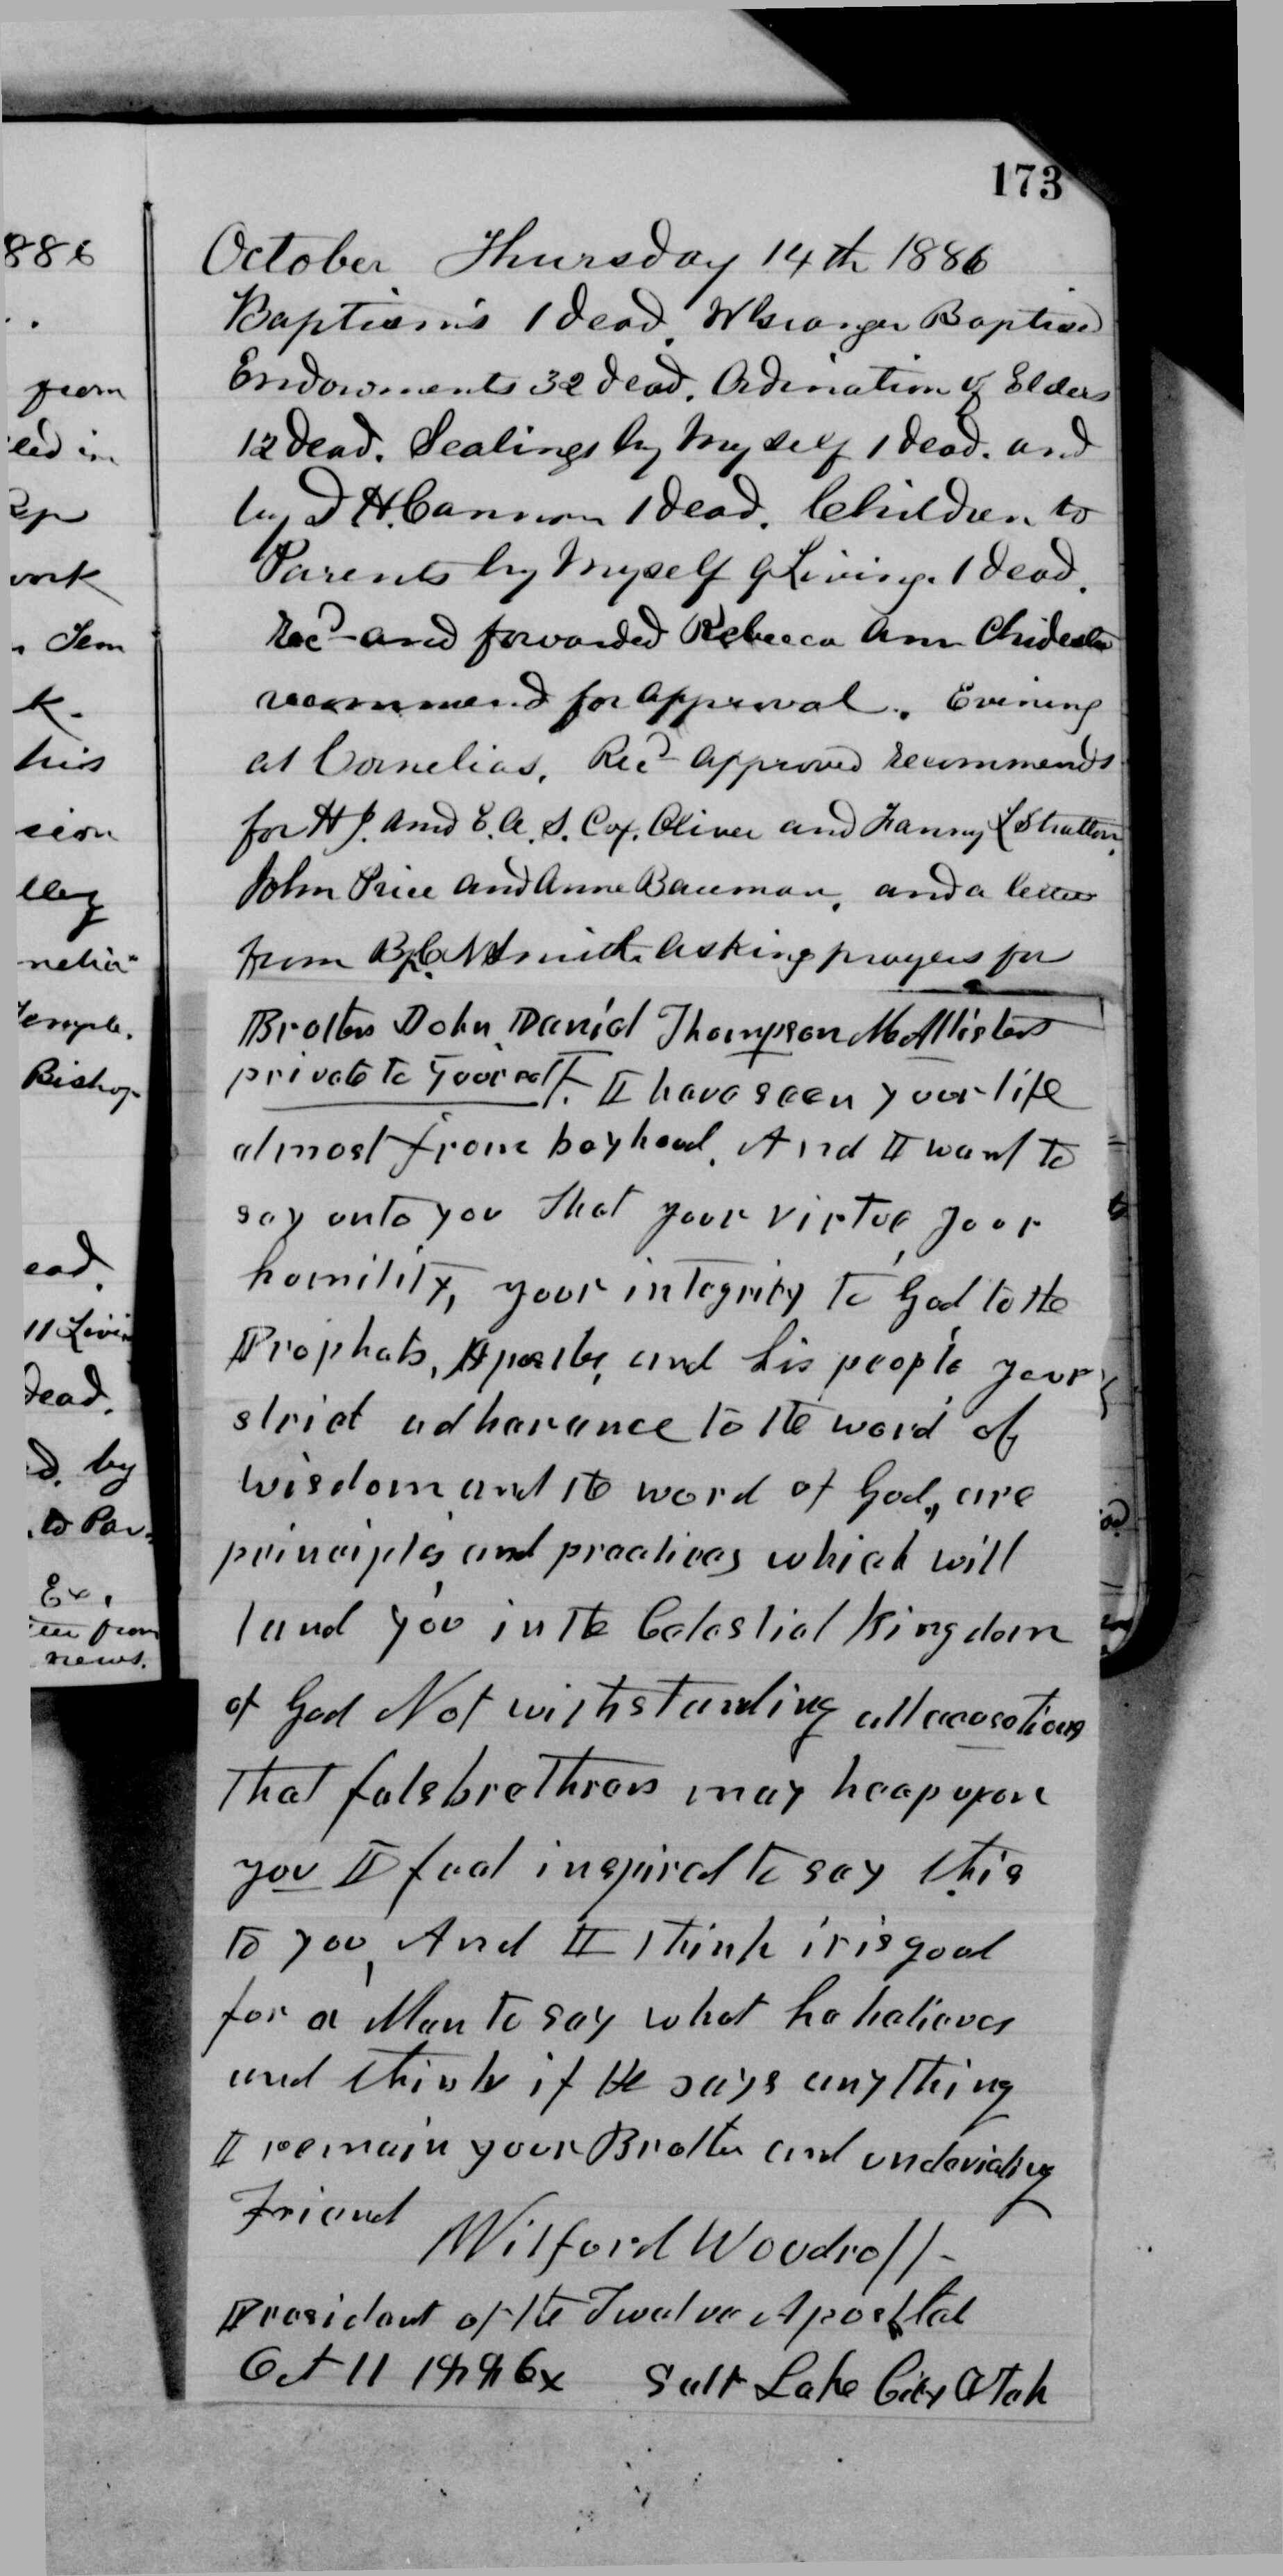 173
October Thursday 14th 1886
Baptisms 1 dead. Baptised
Endowments 32 dead. Ordination of Elders
12 dead. Sealings by Myself 1 dead. and
by D H. Cannon 1 dead. Children to
Parents by Myself 9 Living. 1 dead.
Recd and forwarded Rebecca Ann Chidester
recommend for approval. Evening
at Cornelias. Recd approved recommends
for H J. and E. A. S. Cox. Oliver and Fanny L Stratton,
John Price and Anne Bauman, and a letter
from asking prayers for
Brother John Daniel Thompson McAllister
private to yourself. I have seen your life
almost from boyhood. And I want to
say unto you that your virtue, your
homility, your integrity to God to the
Prophets, Apostles, and his people your
strict adharance to the word of
wisdom and the word of God, are
principles and practices which will
land you in the Celestial Kingdom
of God Not withstanding all acusations
that fals brethren may heap upon
you I feel inspired to say this
to you, And I think it is good
for a Man to say what he believes
and think if He says anything
I remain your Brother and undeviating
Friend
Wilford Woodruff
President of the Twelve Apostles
Oct 11 1886 Salt Lake City Utah
886
from
led in
ork
Tem
k.
his
sion
lley
nelia
Temple.
Bishop
ead.
11 Livin
dead.
d. by
to Par.
Ex.
from
news.